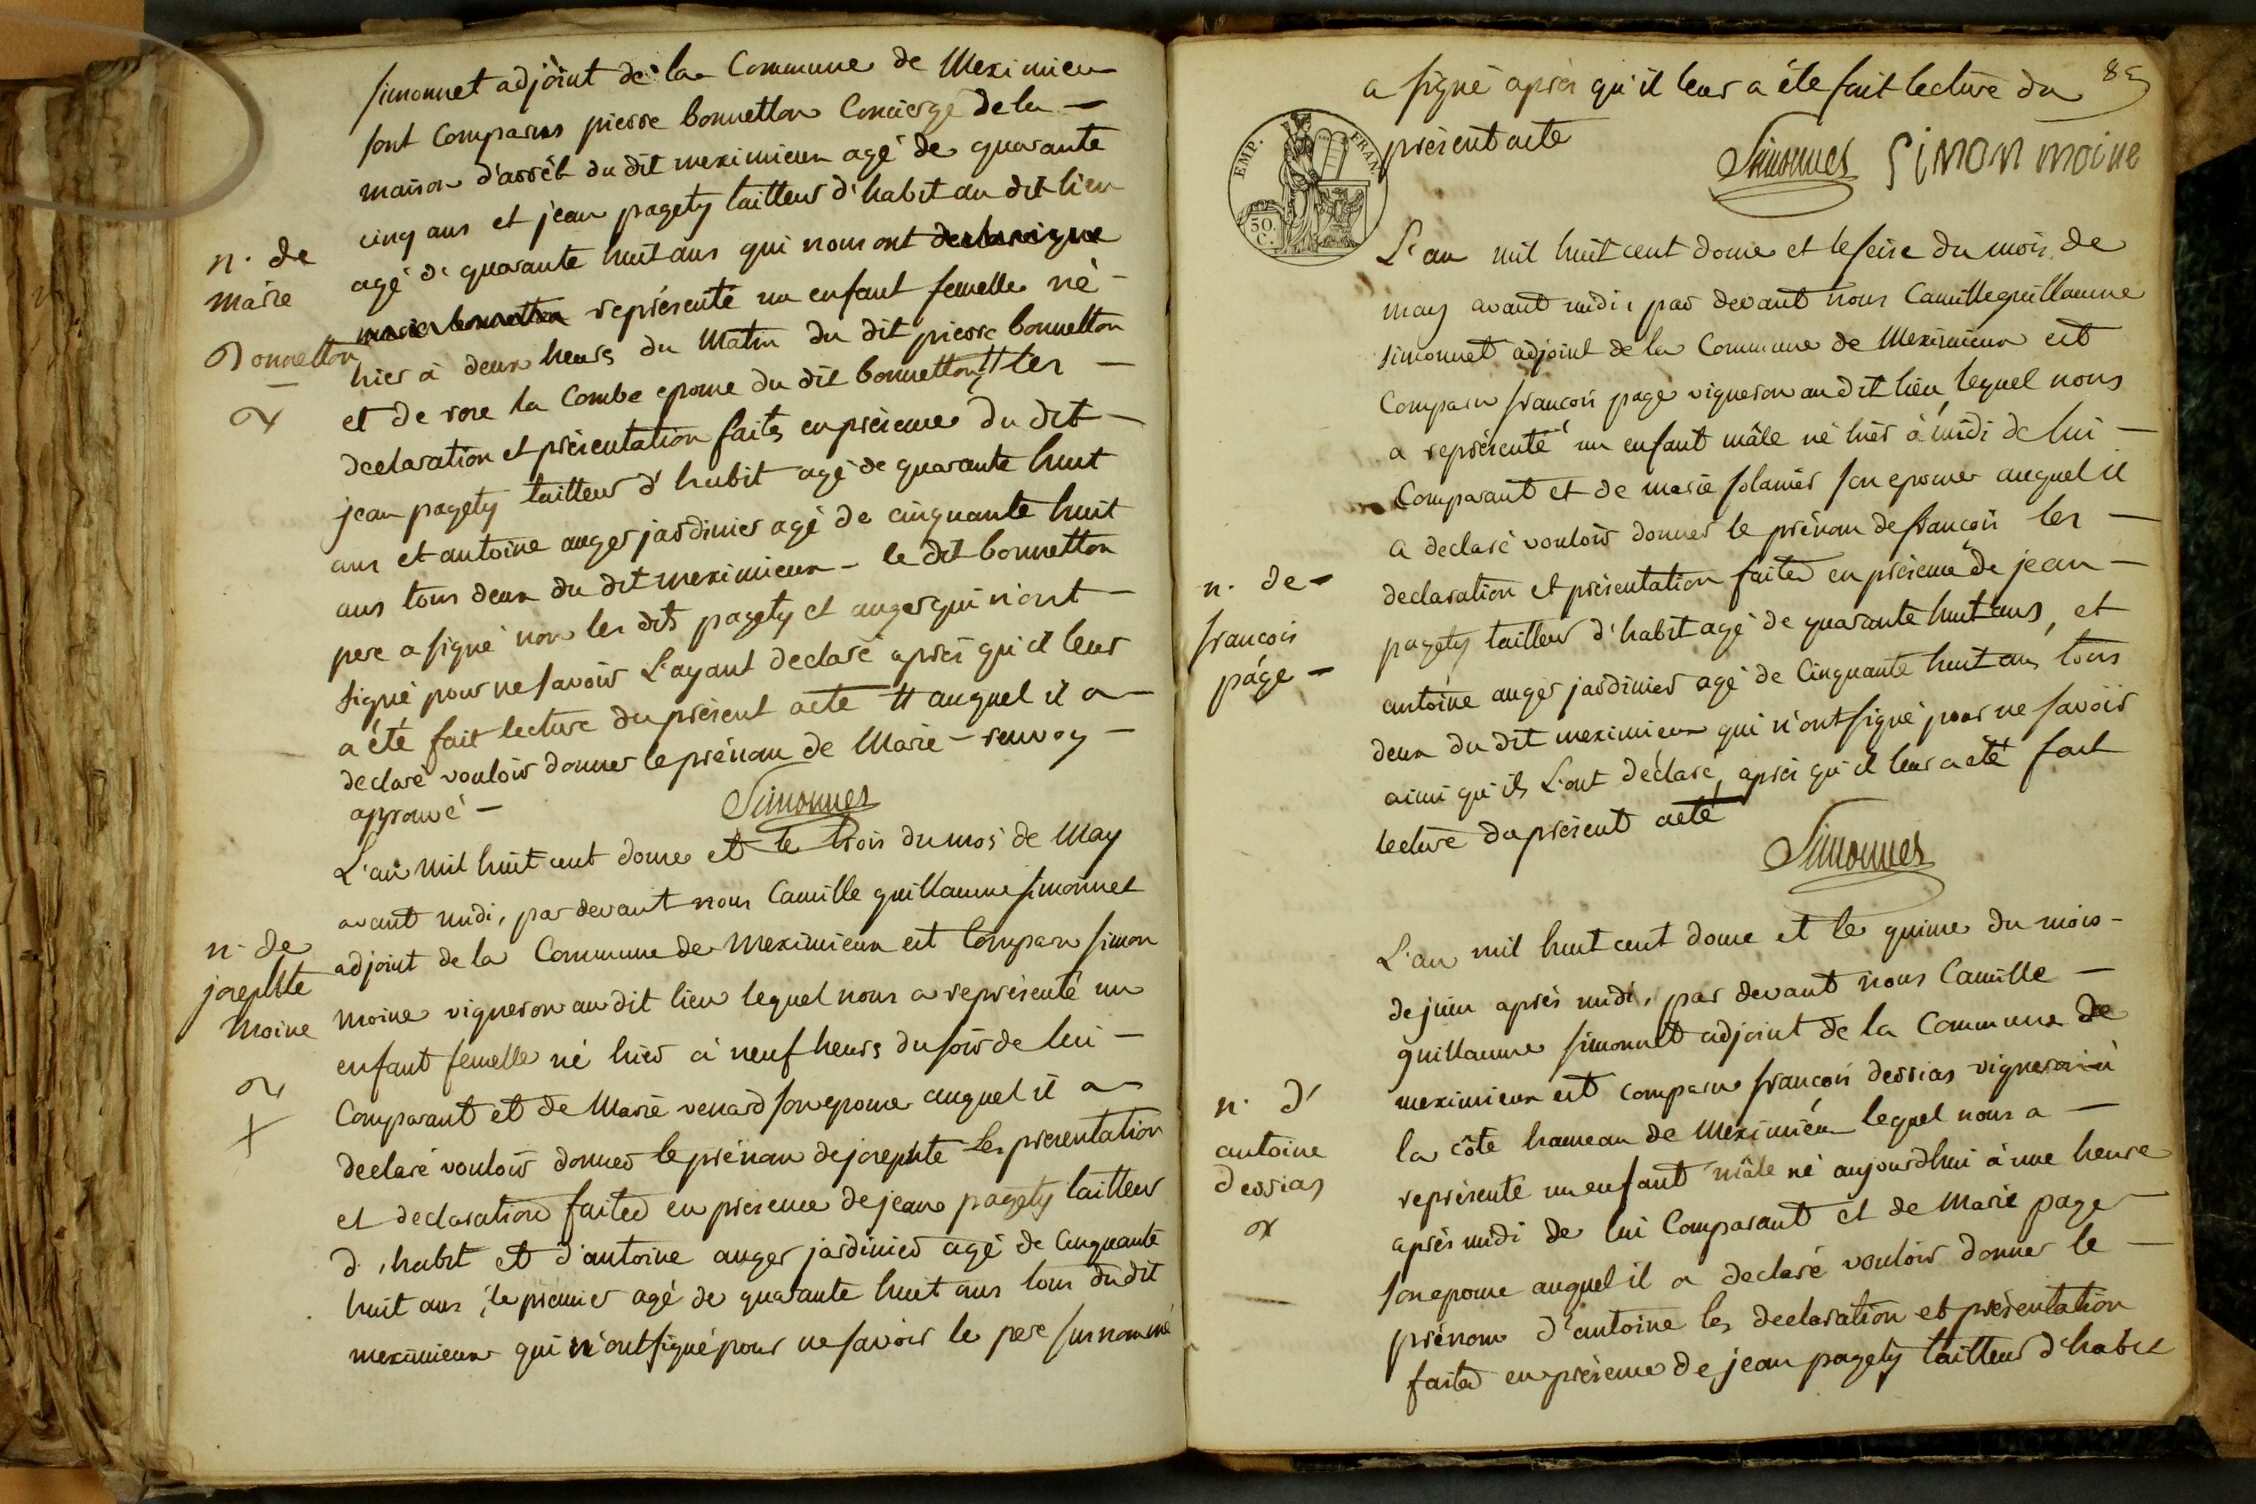 simonnet adjoint de la Commune de Meximieu
sont Comparus pierre bonnetton Concierge de la -
maison d'arrêt du dit meximieux agé de quarante
cinq ans et jean pagety tailleur d'habit au dit lieu
agé de quarante huit ans qui nous ont
représenté un enfant femelle né -
hier à deux heurs du Matin du dit pierre bonnetton
et de rose la Combe epouse du dit bonnetton # les -
declaration et présentation faits en présence du dit -
jean pagety tailleur d'habit agé de quarante huit
ans et antoine auger jardinier agé de cinquante huit
ans tous deux du dit meximieux - le dit bonnetton
pere a signé non les dits pagety et auger qui n'ont -
signé pour ne savoir L'ayant declaré après qu'il leur
a été fait lecture du présent acte # auquel il a -
declaré vouloir donner le prénom de Marie - renvoy -
approuvé -
Simonnet
n. de
Marie
Bonnetton
L'an mil huit cent douze et le trois du mois de May
avant midi, par devant nous Camille guillaume simonnet
adjoint de la Commune de Meximieux est Comparu simon
moine vigneron au dit lieu lequel nous a représenté un
enfant femelle né hier à neuf heurs du soir de lui -
Comparant et de Marie venard son epouse auquel il a
declaré vouloir donner le prénom de josephte Les presentation
et declaration faites en présence de jean pagety tailleur
d'habit et d'antoine auger jardinier agé de Cinquante
huit ans, le premier agé de quarante huit ans tous du dit
meximieux qui n'ont signé pour ne savoir le pere surnommé
n. de
josephte
Moine
85
a signé après qu'il leur a été fait lecture du
présent acte
Simonnet Simon moine
EMP. FRAN.
50 C.
L'an mil huit cent douze et le seise du mois de
may avant midi, par devant nous Camille guillaume
simonnet adjoint de la Commune de Meximieux est
Comparu francois page vigneron au dit lieu lequel nous
a représenté un enfant mâle né hier à midi de lui -
Comparant et de marie solanier son epouse auquel il
a declaré vouloir donner le prénom de francois les -
declaration et présentation faites en présence de jean -
pagety tailleur d'habit agé de quarante huit ans, et
antoine auger jardinier agé de Cinquante huit ans, tous
deux du dit meximieux qui n'ont signé pour ne savoir
ainsi qu'ils L'ont déclaré, après qu'il leur a été fait
lecture du présent acte
Simonnet
n. de -
francois
páge -
L'an mil huit cent douze et le quinse du mois -
de juin après midi, par devant nous Camille -
guillaume simonnet adjoint de la Commune de
meximieux est comparu francois derrias vigneron à
la côte hameau de Meximieu lequel nous a -
représenté un enfant mâle né aujourdhui à une heure
après midi de lui Comparant et de Marie page -
son epouse auquel il a declaré vouloir donner le -
prénom d'antoine les declaration et présentation
faites en présence de jean pagety tailleur d'habit
n. d'
antoine
derrias